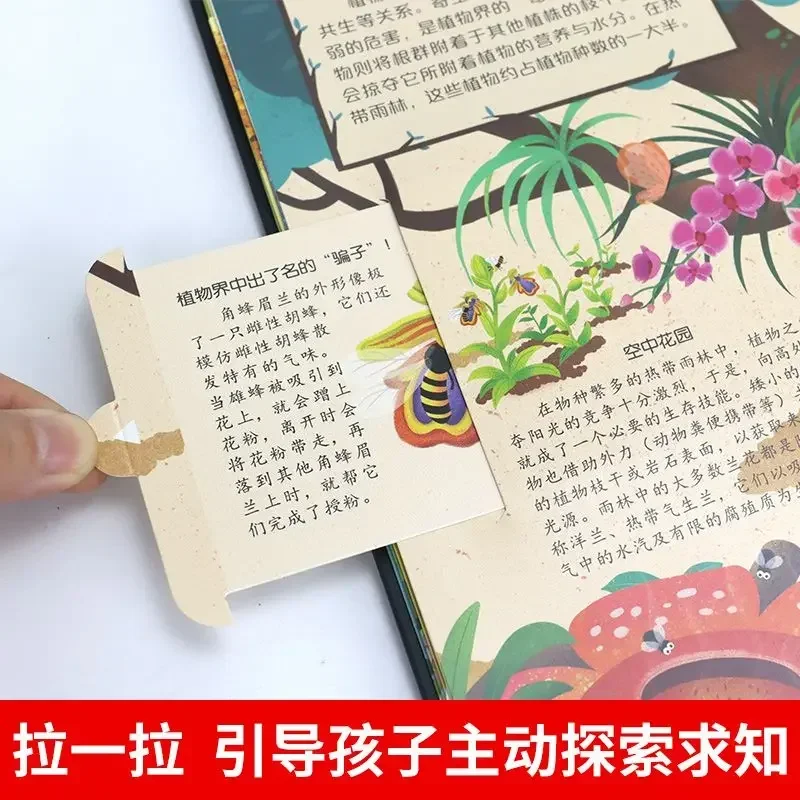 共生等关系。
弱的危害，是植物界的
物则将根群附着于其他植株的枝干
会掠夺它所附着植物的营养与水分。在热
带雨林，这些植物约占植物种数的一大半。
植物界中出了名的“骗子”！
角蜂眉兰的外形像极
了一只雌性胡蜂，它们还
模仿雌性胡蜂散
发特有的气味。
当雄蜂被吸引到
花上，就会蹭上
花粉，离开时会
将花粉带走，再
落到其他角蜂眉
兰上时，就帮它
们完成了授粉。
空中花园
在物种繁多的热带雨林中，植物之
夺阳光的竞争十分激烈，于是，向高处
就成了一个必要的生存技能。矮小的
物也借助外力（动物粪便携带等）
的植物枝干或岩石表面，以获取来
光源。雨林中的大多数兰花都是附
称洋兰、热带气生兰，它们以吸
气中的水汽及有限的腐殖质为
拉一拉 引导孩子主动探索求知